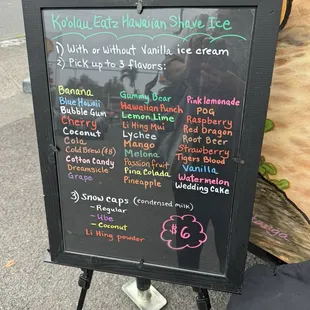 Ko'olau Eatz Hawaiian Shave Ice
1) With or Without Vanilla ice cream
2) Pick up to 3 flavors:
Banana
Blue Hawaii
Bubble Gum
Cherry
Coconut
Cola
Cold Brew ($8)
Cotton Candy
Dreamsicle
Grape
Gummy Bear
Hawaiian Punch
Lemon Lime
Li Hing Mui
Lychee
Mango
Melona
Passion fruit
Pina Colada
Pineapple
Pink lemonade
POG
Raspberry
Red Dragon
Root Beer
Strawberry
Tigers Blood
Vanilla
Watermelon
Wedding Cake
3) Snow caps (condensed milk)
- Regular
- Ube
- Coconut
Li Hing powder
$6